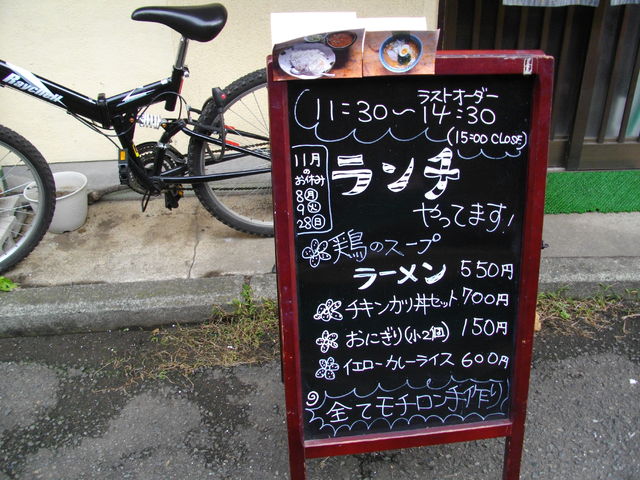 Raychell
ラストオーダー
11:30〜14:30
(15:00 CLOSE)
11月
の
お休み
8(月)
9(火)
28(日)
ランチ
やってます!
鶏のスープ
ラーメン 550円
チキンカツ丼セット 700円
おにぎり(小2個) 150円
イエローカレーライス 600円
全てモチロン手作り